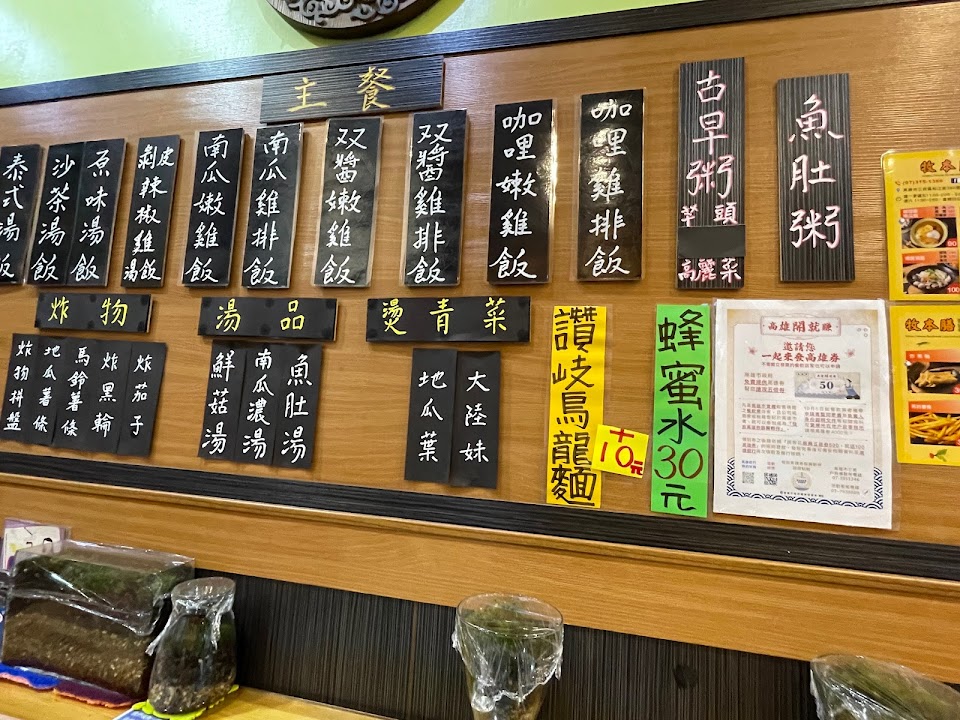 主餐
魚肚粥
古早粥
芋頭
高麗菜
咖哩雞排飯
咖哩嫩雞飯
双醬雞排飯
双醬嫩雞飯
南瓜雞排飯
南瓜嫩雞飯
剝皮辣椒雞湯飯
原味湯飯
沙茶湯飯
泰式湯飯
炸物
炸茄子
炸黑輪
馬鈴薯條
地瓜薯條
炸物拼盤
湯品
魚肚湯
南瓜濃湯
鮮菇湯
燙青菜
大陸妹
地瓜葉
讚岐烏龍麵
+10元
蜂蜜水30元
高雄開就賺
邀請您
一起來食高雄券
50
牧本
90
100
牧本